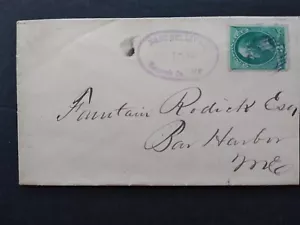 Fountain Rodick Esq
Bar Harbor
Me